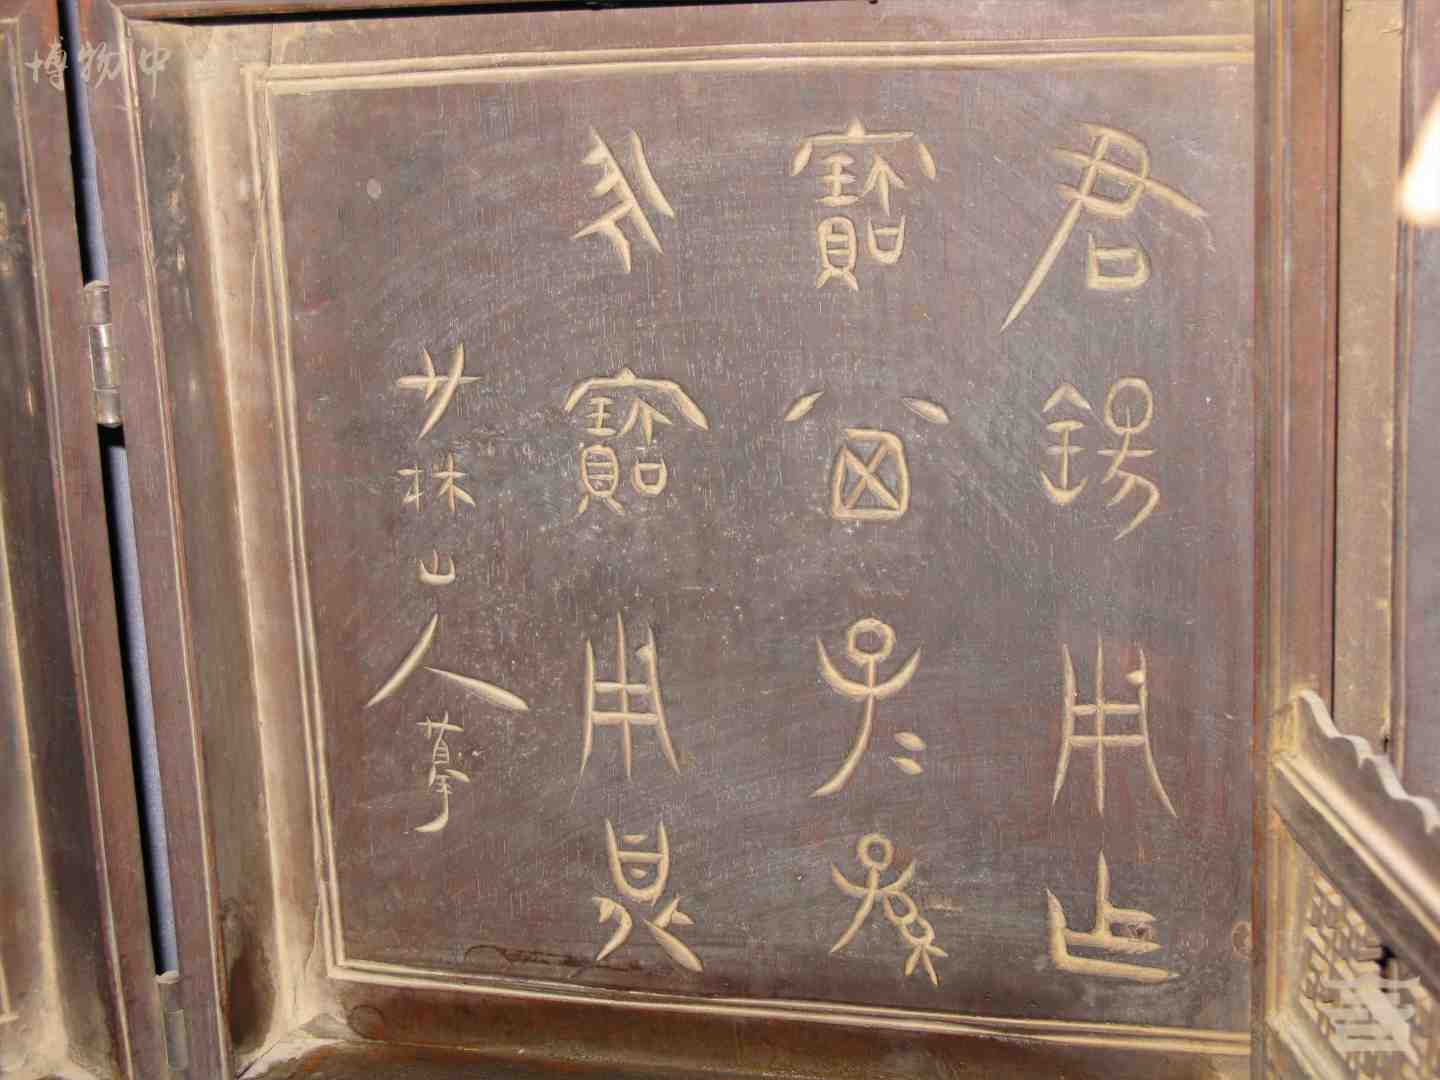 博物中
君錫用乍
寶子二孫
永寶用
林山人摹